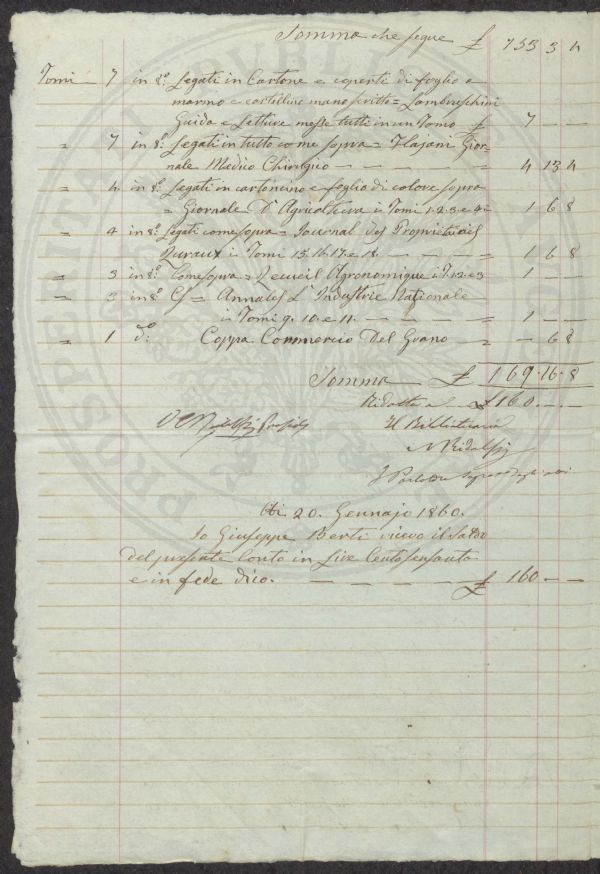 Somma che segue £ 153 3 4
Tomi 7 in 8.° Legati in Cartone e coperti di foglio a
marmo e cartellino manoscritto = Lambruschini
Guida e Letture messe tutti in un Tomo £ 7 — —
= 7 in 8.° Legati in tutto come sopra = Flajani Gior-
nale Medico Chirurgico — — — = 4 13 4
= 4 in 8.° Legati in cartoncino e foglio di colore sopra
= Giornale D'Agricoltura i Tomi 1. 2. 3. e 4 = 1 6 8
= 4 in 8.° Legati come sopra = Journal des Proprietaires
Ruraux i Tomi 15. 16. 17. e 18. — — — = 1 6 8
= 3 in 8.° Come sopra = Recueil Agronomique i T. 1 2 e 3 = 1 — —
= 3 in 8.° = Annales L'Industrie Nationale
i Tomi 9. 10. e 11. — — = 1 — —
= 1 d.° Coppa. Commercio Del Grano — = — 6 8
Somma £ 169. 16. 8
Ridotta a £ 160. — —
Il Bibliotecario
Ridolfi
Di 20. Gennajo 1860.
Io Giuseppe Berti ricevo il Saldo
del presente Conto in Lire Centosessanta
e in fede dico. — — — — — £ 160 — —
PROSPERITÀ